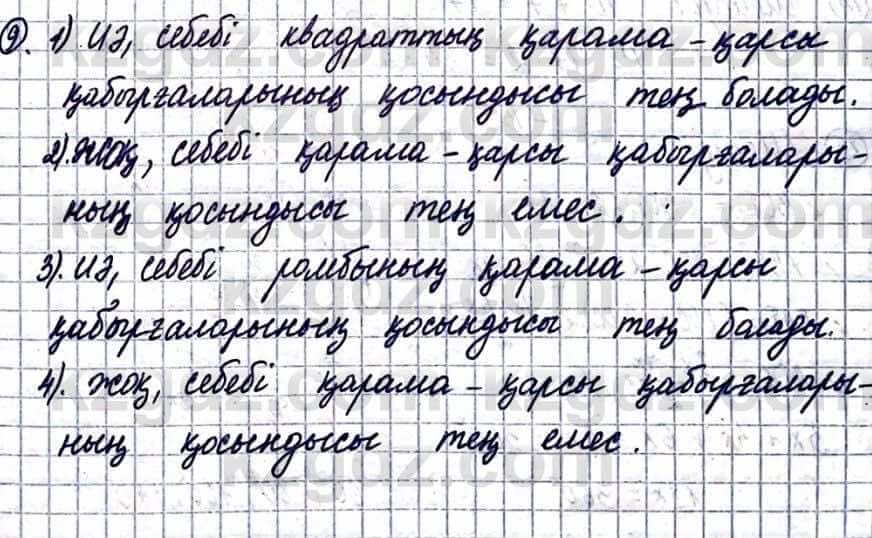 9. 1) Иә, себебі квадраттың қарама-қарсы
қабырғаларының қосындысы тең болады.
2). жоқ, себебі қарама-қарсы қабырғалары-
ның қосындысы тең емес.
3). Иә, себебі ромбының қарама-қарсы
қабырғаларының қосындысы тең болады.
4). жоқ, себебі қарама-қарсы қабырғалары-
ның қосындысы тең емес.